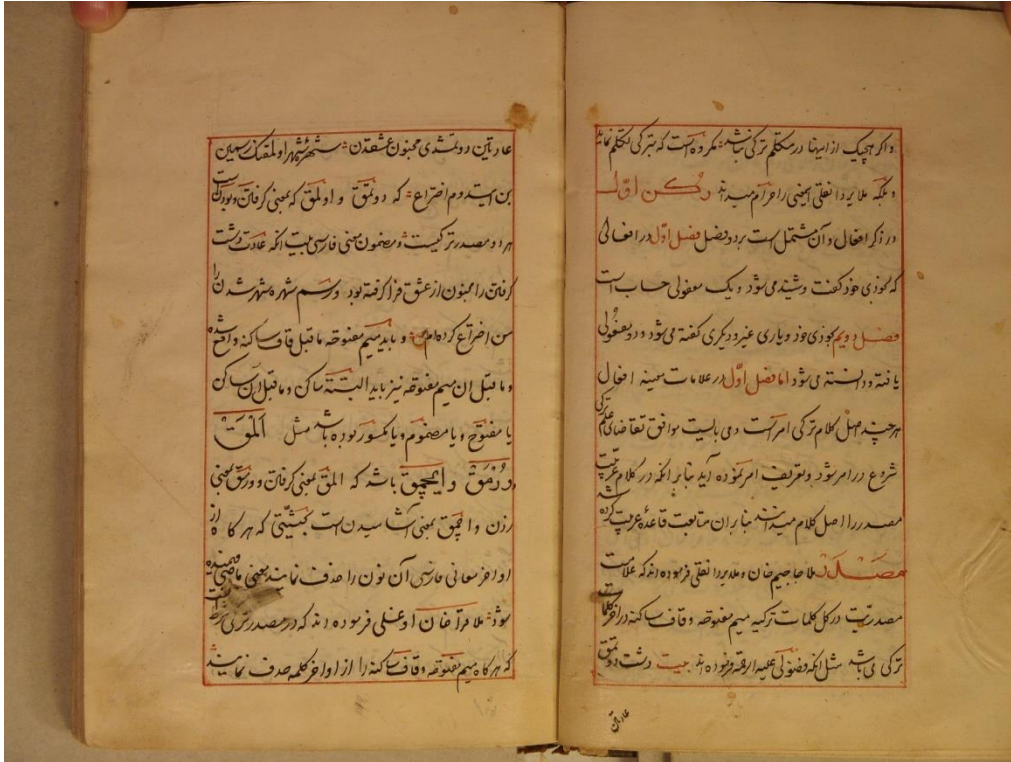 واکر هیچیک از اینها در متکلم ترکی نباشد مکروه است که بترکی تکلم نماید
و بلکه ملا پردا نقلی اینمعنی را حرام میداند رکن اول
در ذکر افعال و آن مشتمل است بر دو فصل فصل اول در افعالی
که بخودی خود کفت و شنید می شود و یک مفعولی حساب است
فصل دویم بخودی خود و یاری غیر و دیکری کفته می شود و دو مفعولی
یافته و دانسته می شود اما فصل اول در علامات معینه افعال
هر چند اصل کلام ترکی امر است و می بایست موافق تقاضای کلام ترکی
شروع در امر شود و تعریف امر نموده آید بنا بر انکه در کلام عربیت
مصدر را اصل کلام میدانند بنا بران متابعت قاعدهٔ عربیت کرده شد
مصدر ملا حاجیم خان و ملا پردا نقلی فرموده اند که علامت
مصدریت در کل کلمات ترکیه میم مفتوحه و قاف ساکنه در اخر کلمات
ترکی می باشد مثل انکه فضولی علیه الرحمه فرموده اند بیت دشت دوتمق
عادتین
عادتین دوتمشدی مجنون عشقدن شهرهٔ شهر اولمقنک رسمین
بن ایتدوم اختراع که دوتمق و اولمق که بمعنی کرفتن و بودن است
هر دو مصدر ترکیست و مضمون معنی فارسی بیت انکه عادت دشت
کرفتن را مجنون از عشق فرا کرفته بود و رسم شهره شهر شدن را
من اختراع کرده ام و باید میم مفتوحه ما قبل قاف ساکنه واقع شده
و ما قبل ان میم مفتوحه نیز باید البته ساکن و ما قبل ان ساکن
یا مفتوح و یا مضموم و یا مکسور بوده باشد مثل المق
و ورمق و ایچمق باشد که المق بمعنی کرفتن و ورمق بمعنی
زدن و ایچمق بمعنی آشامیدن است بحیثیتی که هر کاه از
اواخر معانی فارسی آن نون را حذف نمایند معنی ماضی فهمیده
شود ملا قرا خان اوغلی فرموده اند که در مصدر ترکی شرط است
که هر کاه میم مفتوحه و قاف ساکنه را از اواخر کلمه حذف نمایند